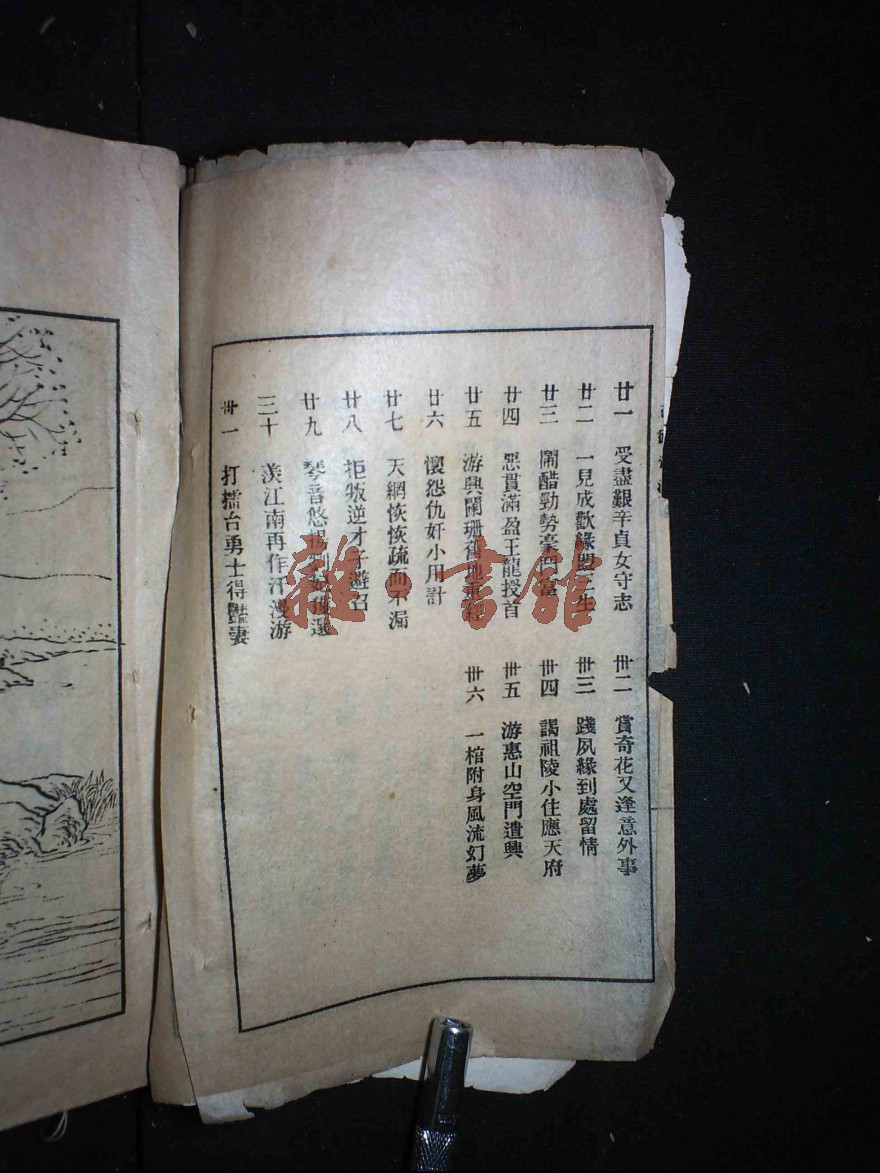 廿一 受盡艱辛貞女守志
廿二 一見成歡緣盟三生
廿三 鬧醋勁勢豪門富
廿四 惡貫滿盈王龍授首
廿五 游興闌珊舊地重
廿六 懷怨仇奸小用計
廿七 天網恢恢疏而不漏
廿八 拒叛逆才子避召
廿九 琴音悠揚
三十 羨江南再作汗漫游
卅一 打擂台勇士得豔妻
卅二 賞奇花又逢意外事
卅三 踐夙緣到處留情
卅四 謁祖陵小住應天府
卅五 游惠山空門遣興
卅六 一棺附身風流幻夢
雜·書館